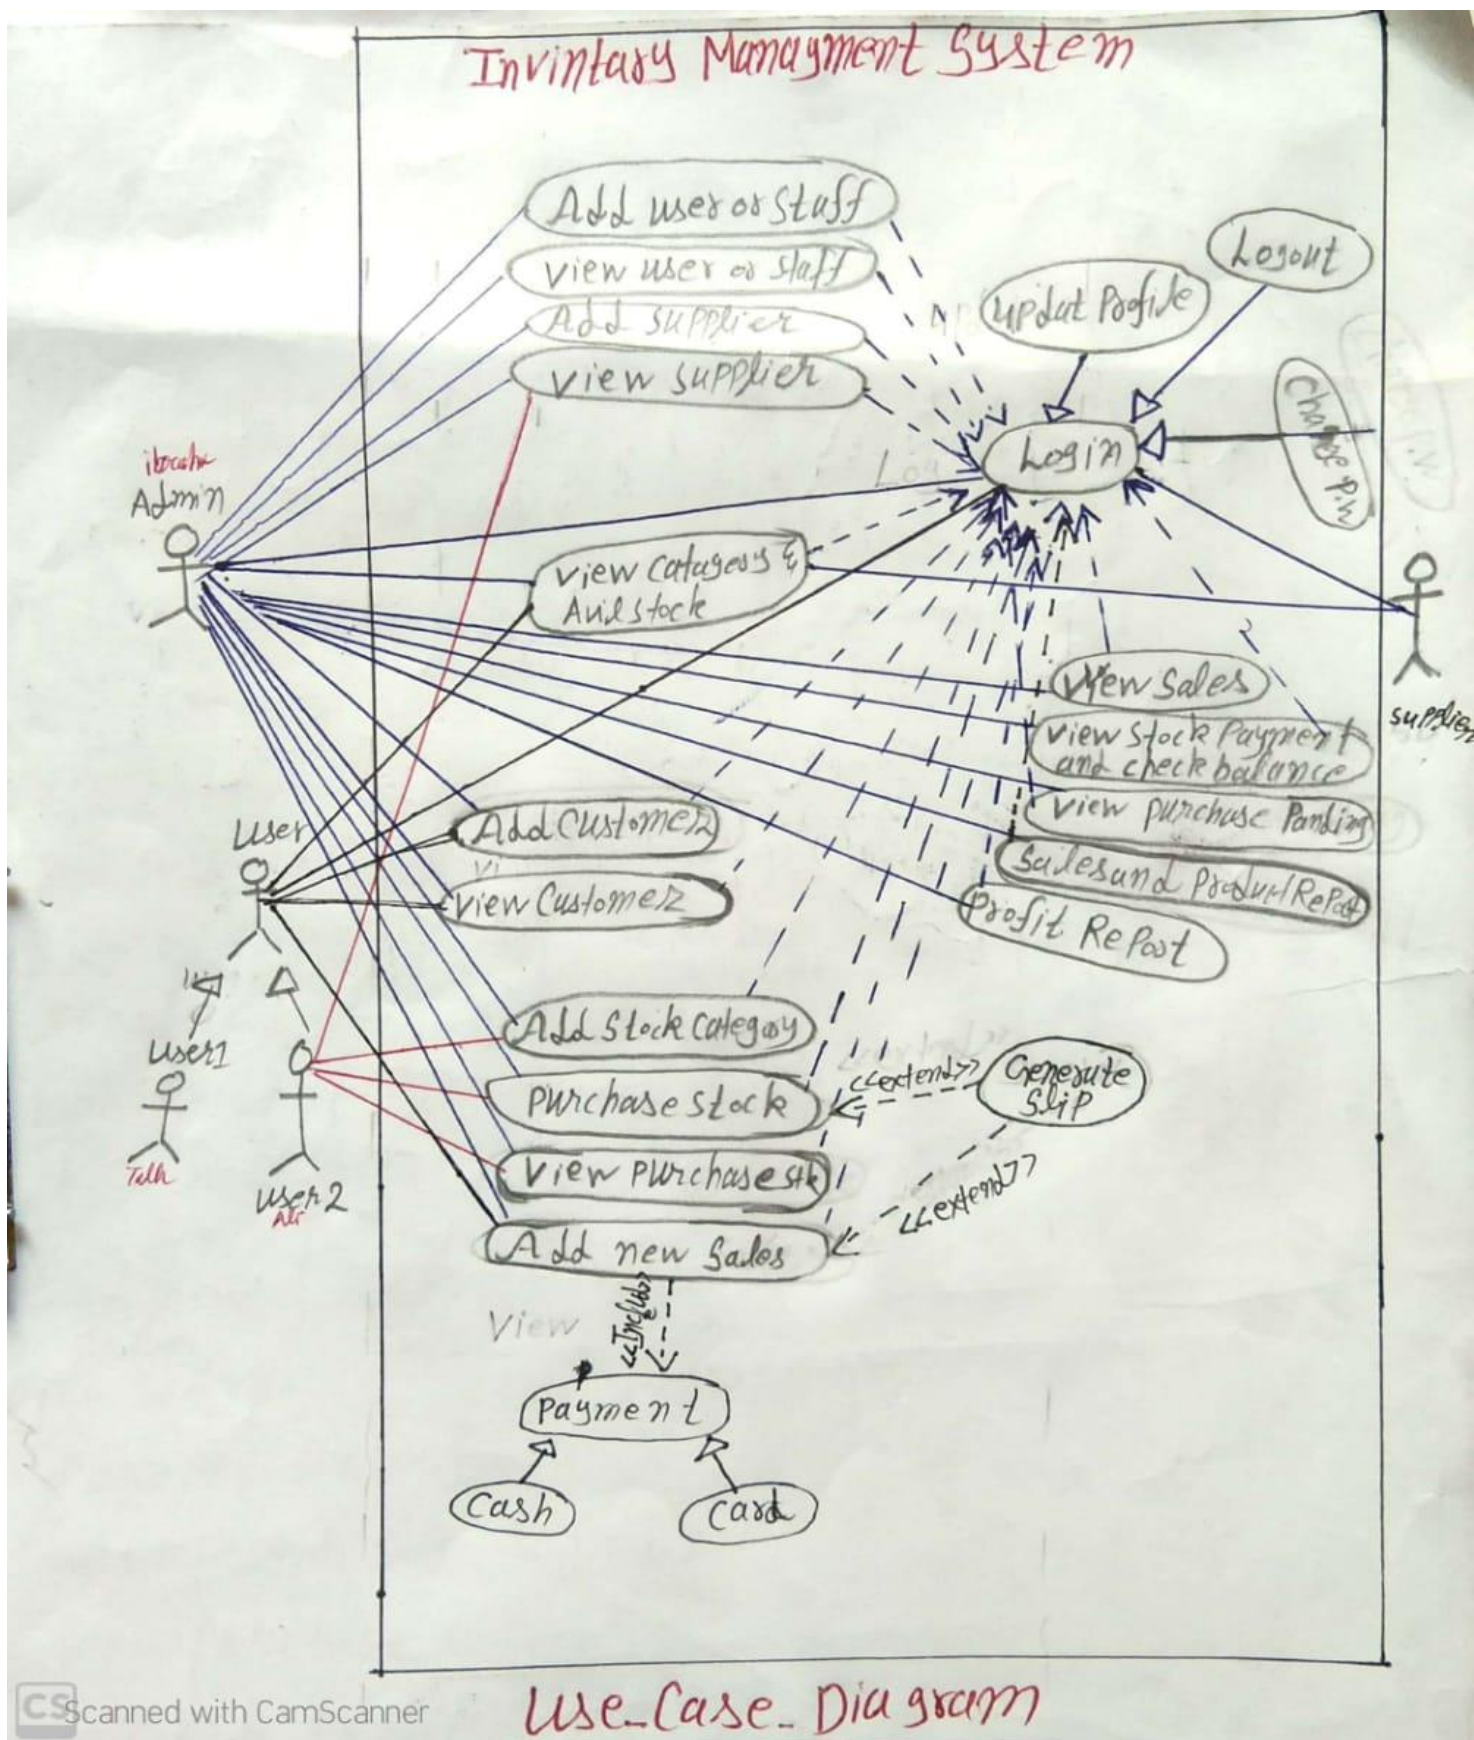 Invintary Managment System
Add user or Staff
View user or Staff
Add Supplier
View Supplier
Logout
Updat Profile
Change P.W
Login
Admin
View Catagory &
Avil Stock
Supplier
View Sales
View Stock Payment
and check balance
View Purchase Panding
Sales and Product Report
Profit Report
User
Add Customer
View Customer
User1
User2
Ali
Add Stock Category
Purchase Stock
View Purchase Stk
Add new Sales
<<extend>>
Generate
Slip
<<extend>>
View
Payment
Cash
Card
CS Scanned with CamScanner
Use_Case_Diagram